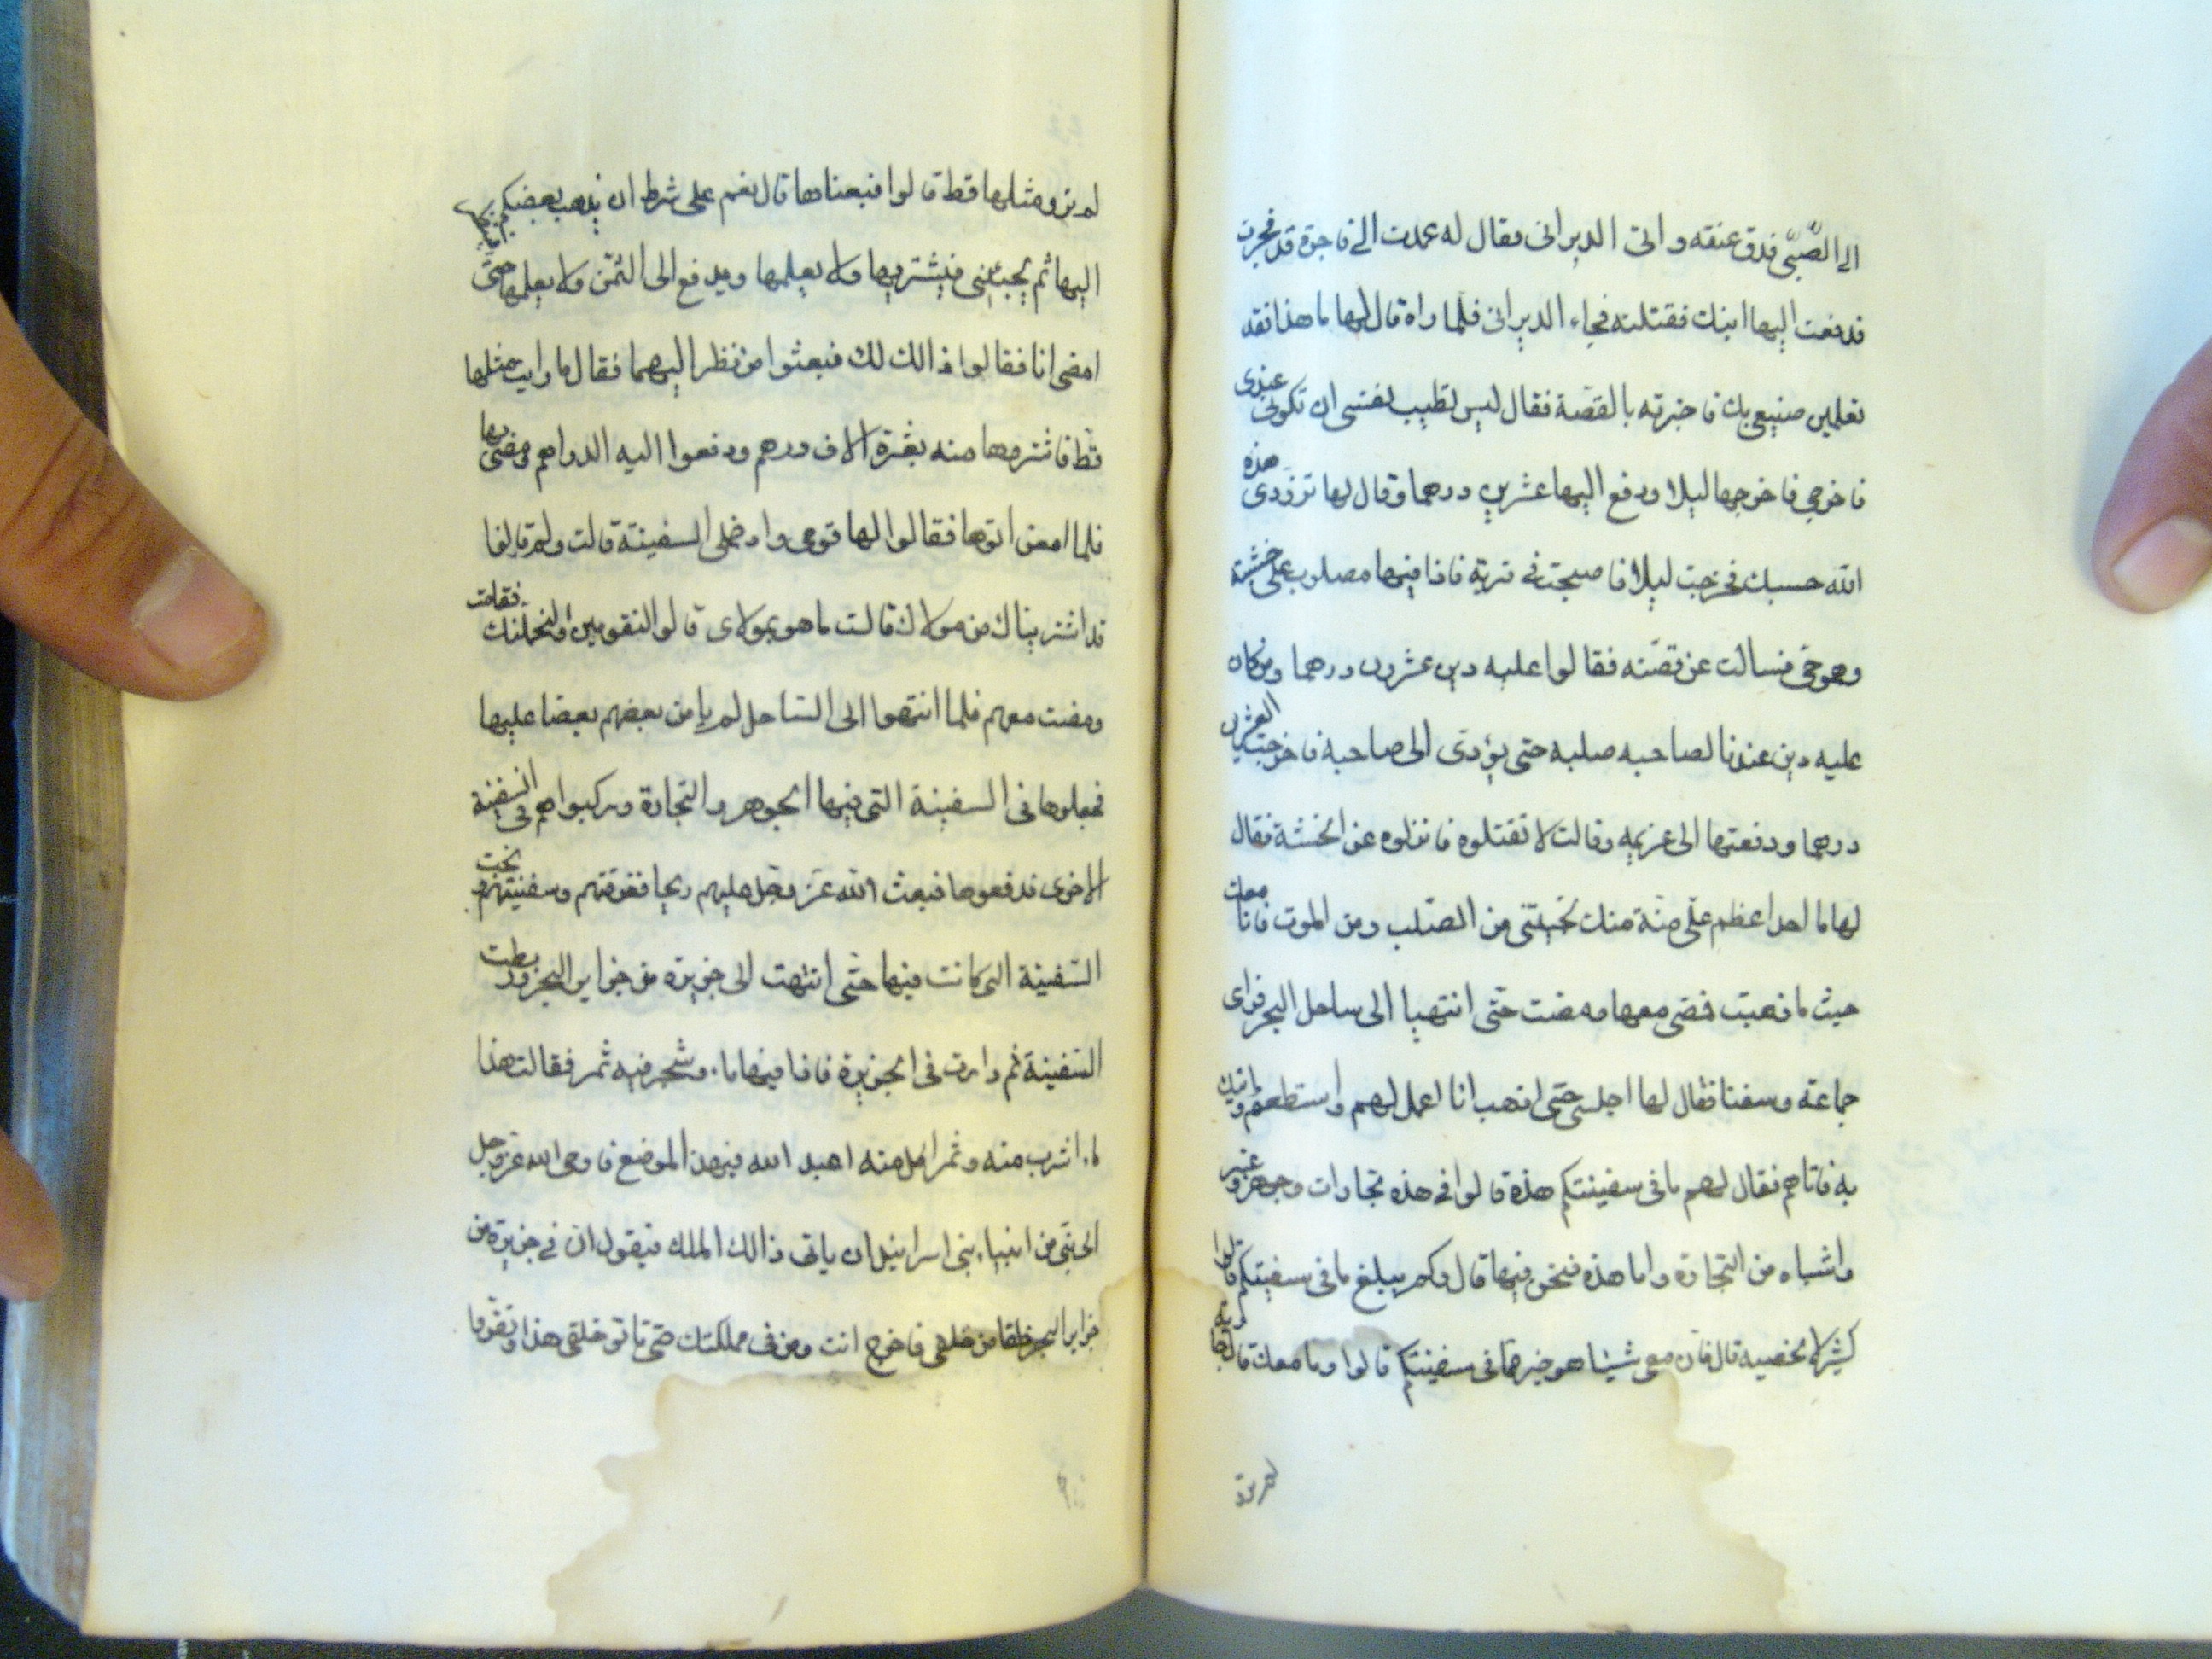 الى الصّبّى فدق عنقه و اتى الديرانى فقال له عمدت الى فاجرة قد فجرت
فدفعت اليها ابنك فقتلته فجاء الديرانى فلما راه قال لها ما هذا فقد
تعلمين صنيعى بك فاخبرته بالقصة فقال ليس تطيب نفسى ان تكونى عندى
فاخرجى فاخرجها ليلا و دفع اليها عشرين درهما و قال لها تزودى هذه
الله حسبك فخرجت ليلا فاصبحت فى قرية فاذا فيها مصلوب على خشبة
وهو حى فسالت عن قصته فقالوا عليه دين عشرون درهما و من كان
عليه دين عندنا لصاحبه صلبه حتى يؤدى الى صاحبه فاخرجت العشرين
درهما و دفعتها الى غريمه و قالت لا تقتلوه فانزلوه عن الخشبة فقال
لها ما احد اعظم علّى منّة منك نجيتنى من الصّلب و من الموت فانا معك
حيث ما ذهبت فمضى معها و مضت حتى انتهيا الى ساحل البحر فراى
جماعة و سفنا فقال لها اجلسى حتى اذهب انا اعمل لهم و استطعم و اتيك
به فاتاهم فقال لهم ما فى سفينتكم هذه قالوا فى هذه تجارات و جوهر و عنبر
و اشياء من التجارة و اما هذه فنحن فيها قال و كم يبلغ ما فى سفينتكم قالوا
كثيرا لا نحصيه قال فان معى شيئا هو خير مما فى سفينتكم قالوا و ما معك قال جارية
لم تروا
لم تروا مثلها قط قالوا فبعناها قال نعم على شرط ان يذهب بعضكم فينظر
اليها ثم يجيئنى فيشتريها و لا يعلمها و يدفع الى الثمن و لا يعلمها حتى
امضى انا فقالوا ذالك لك فبعثوا من نظر اليها فقال ما رايت مثلها
قط فاشتروها منه بعشرة الاف درهم و دفعوا اليه الدراهم فمضى بها
فلما امعن اتوها فقالوا لها قومى و ادخلى السفينة قالت و لم قالوا
قد اشتريناك من مولاك قالت ما هو بمولاى قالوا لتقومين او لنحملنك فقامت
و مضت معهم فلما انتهوا الى الساحل لم يامن بعضهم بعضا عليها
فجعلوها فى السفينة التى فيها الجوهر و التجارة و ركبوا هم فى السفينة
الاخرى فدفعوها فبعث الله عز و جل عليهم ريحا فغرقتهم و سفينتهم و نجت
السفينة التى كانت فيها حتّى انتهت الى جزيرة من جزاير البحر و ربطت
السفينة ثم دارت فى الجزيرة فاذا فيها ماء و شجر فيه ثمر فقالت هذا
ماء اشرب منه و ثمر اكل منه اعبد الله فى هذا الموضع فاوحى الله عز و جل
الى نبّى من انبياء بنى اسرائيل ان ياتى ذالك الملك فيقول ان فى جزيرة من
جزاير البحر خلقا من خلقى فاخرج انت و من فى مملكتك حتى تاتو خلقى هذا و تقروا